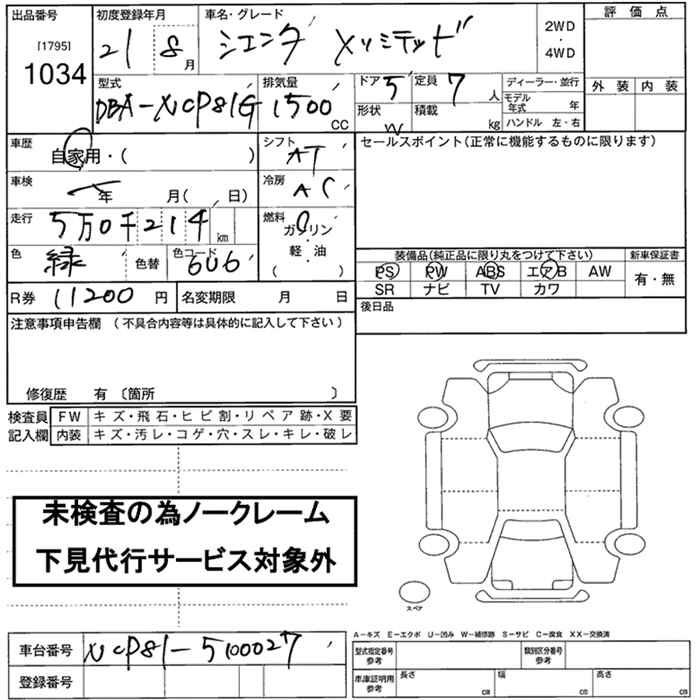 出品番号
[1795]
1034
初度登録年月
21 8月
車名・グレード
シエンタ Xリミテッド
2WD
・
4WD
評価点
外装 内装
型式
DBA-NCP81G
排気量
1500 CC
ドア 5
形状 W
定員 7人
積載 kg
ディーラー・並行
モデル年式 年
ハンドル 左・右
車歴
自家用・( )
シフト
AT
セールスポイント(正常に機能するものに限ります)
車検
年 月( 日)
冷房
AC
走行
5万0千214 km
燃料
ガソリン
軽・油
( )
色
緑
色替
色コード
6U6
装備品(純正品に限り丸をつけて下さい)
PS PW ABS エアB AW
SR ナビ TV カワ
新車保証書
有・無
R券 11200 円
名変期限 月 日
後日品
注意事項申告欄 (不具合内容等は具体的に記入して下さい)
修復歴 有 〔箇所 〕
検査員
記入欄
FW キズ・飛石・ヒビ割・リペア跡・X要
内装 キズ・汚レ・コゲ・穴・スレ・キレ・破レ
未検査の為ノークレーム
下見代行サービス対象外
スペア
A-キズ E-エクボ U-凹み W-補修跡 S-サビ C-腐食 XX-交換済
車台番号 NCP81-5100027
登録番号
型式指定番号
参考
類別区分番号
参考
車庫証明用
参考
長さ cm
幅 cm
高さ cm